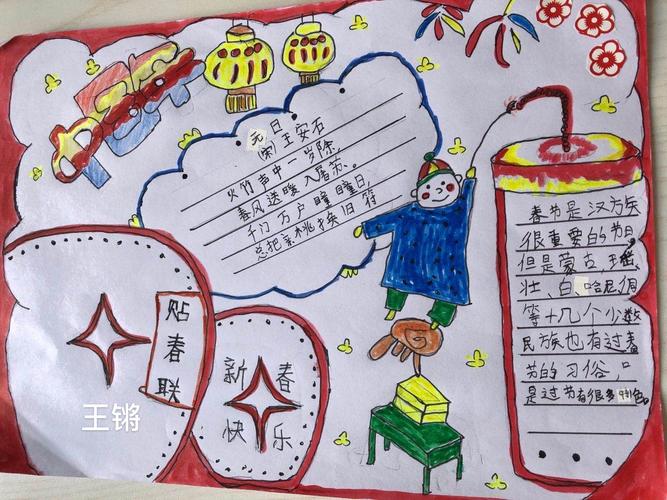 元日
(宋)王安石
火竹声中一岁除,
春风送暖入屠苏。
千门万户瞳瞳日,
总把新桃换旧符
贴春联
新春
快乐
王锵
春节是汉族
很重要的节日,
但是蒙古、瑶、
壮、白、哈尼、侗
等十几个少数
民族也有过春
节的习俗
是过节者很多特色。